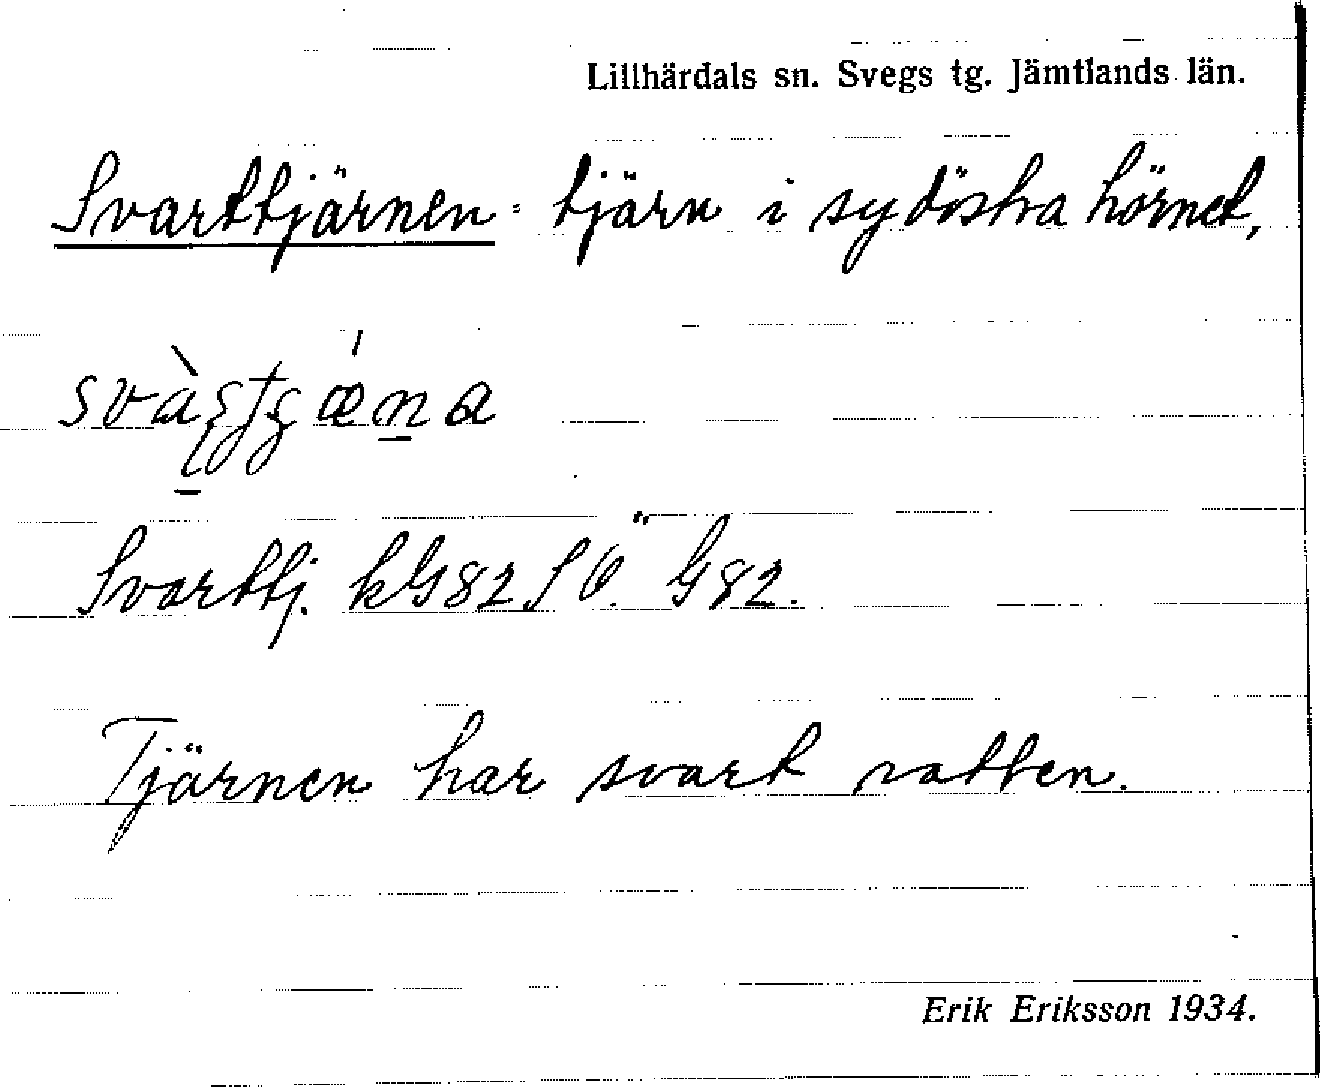 Lillhärdals sn. Svegs tg. Jämtlands län.
Svarttjärnen: tjärn i sydöstra hörnet,
Svarttj. kG82 SÖ. G82.
Tjärnen har svart vatten.
Erik Eriksson 1934.